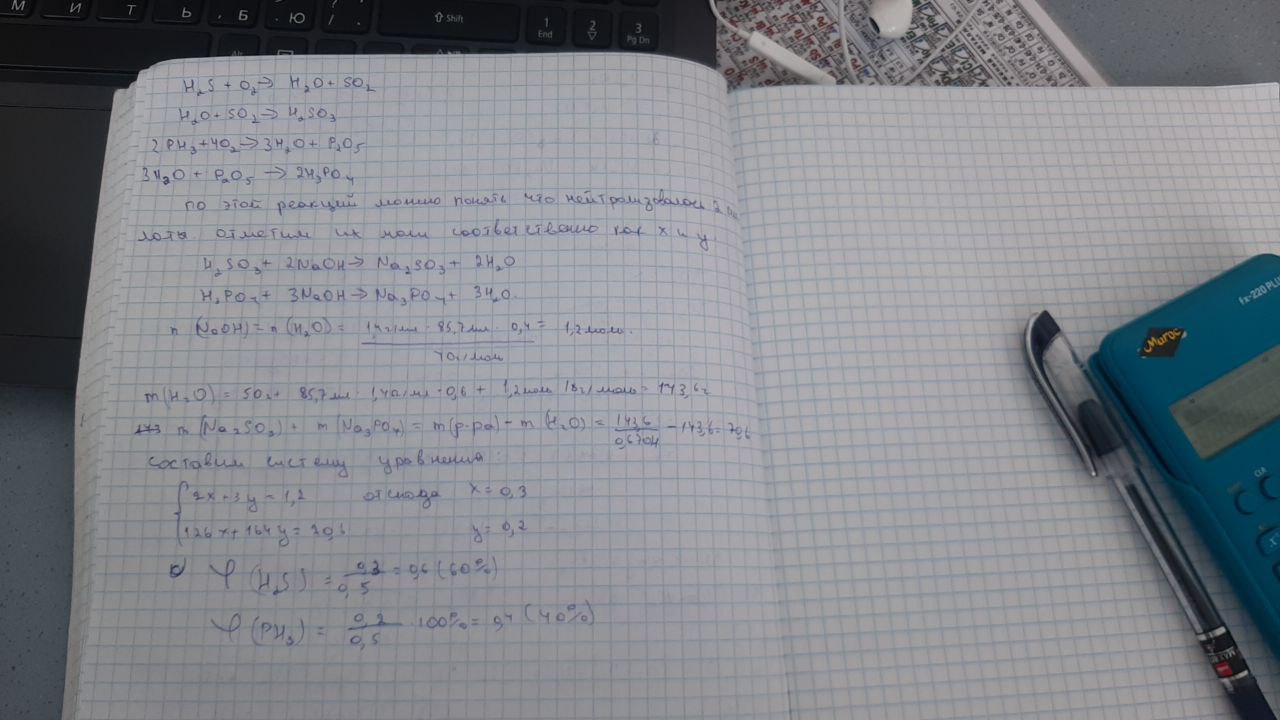 М И Т Ь , Б . Ю / ? . ⇧ Shift 1 End 2 3 Pg Dn
Alt
H₂S + O₂ → H₂O + SO₂
H₂O + SO₂ → H₂SO₃
2PH₃ + 4O₂ → 3H₂O + P₂O₅
3H₂O + P₂O₅ → 2H₃PO₄
по этой реакций можно понять что нейтрализовалось 2
лоты отметим их моли соответственно как x и y
H₂SO₃ + 2NaOH → Na₂SO₃ + 2H₂O
H₃PO₄ + 3NaOH → Na₃PO₄ + 3H₂O.
n (NaOH) = n (H₂O) = 1,4г/мл · 85,7мл · 0,4 / 40г/моль = 1,2моль.
m(H₂O) = 50г + 85,7мл · 1,40г/мл · 0,6 + 1,2моль 18г/моль = 143,6г
m (Na₂SO₃) + m (Na₃PO₄) = m(р-ра) - m (H₂O) = 143,6 / 0,6704 - 143,6 = 70,6
составим систему уравнения:
{ 2x + 3y = 1,2 отсюда x = 0,3
126x + 164y = 70,6 y = 0,2
φ (H₂S) = 0,3 / 0,5 = 0,6 (60%)
φ (PH₃) = 0,2 / 0,5 · 100% = 0,4 (40%)
fx-220 PLUS
Maroc